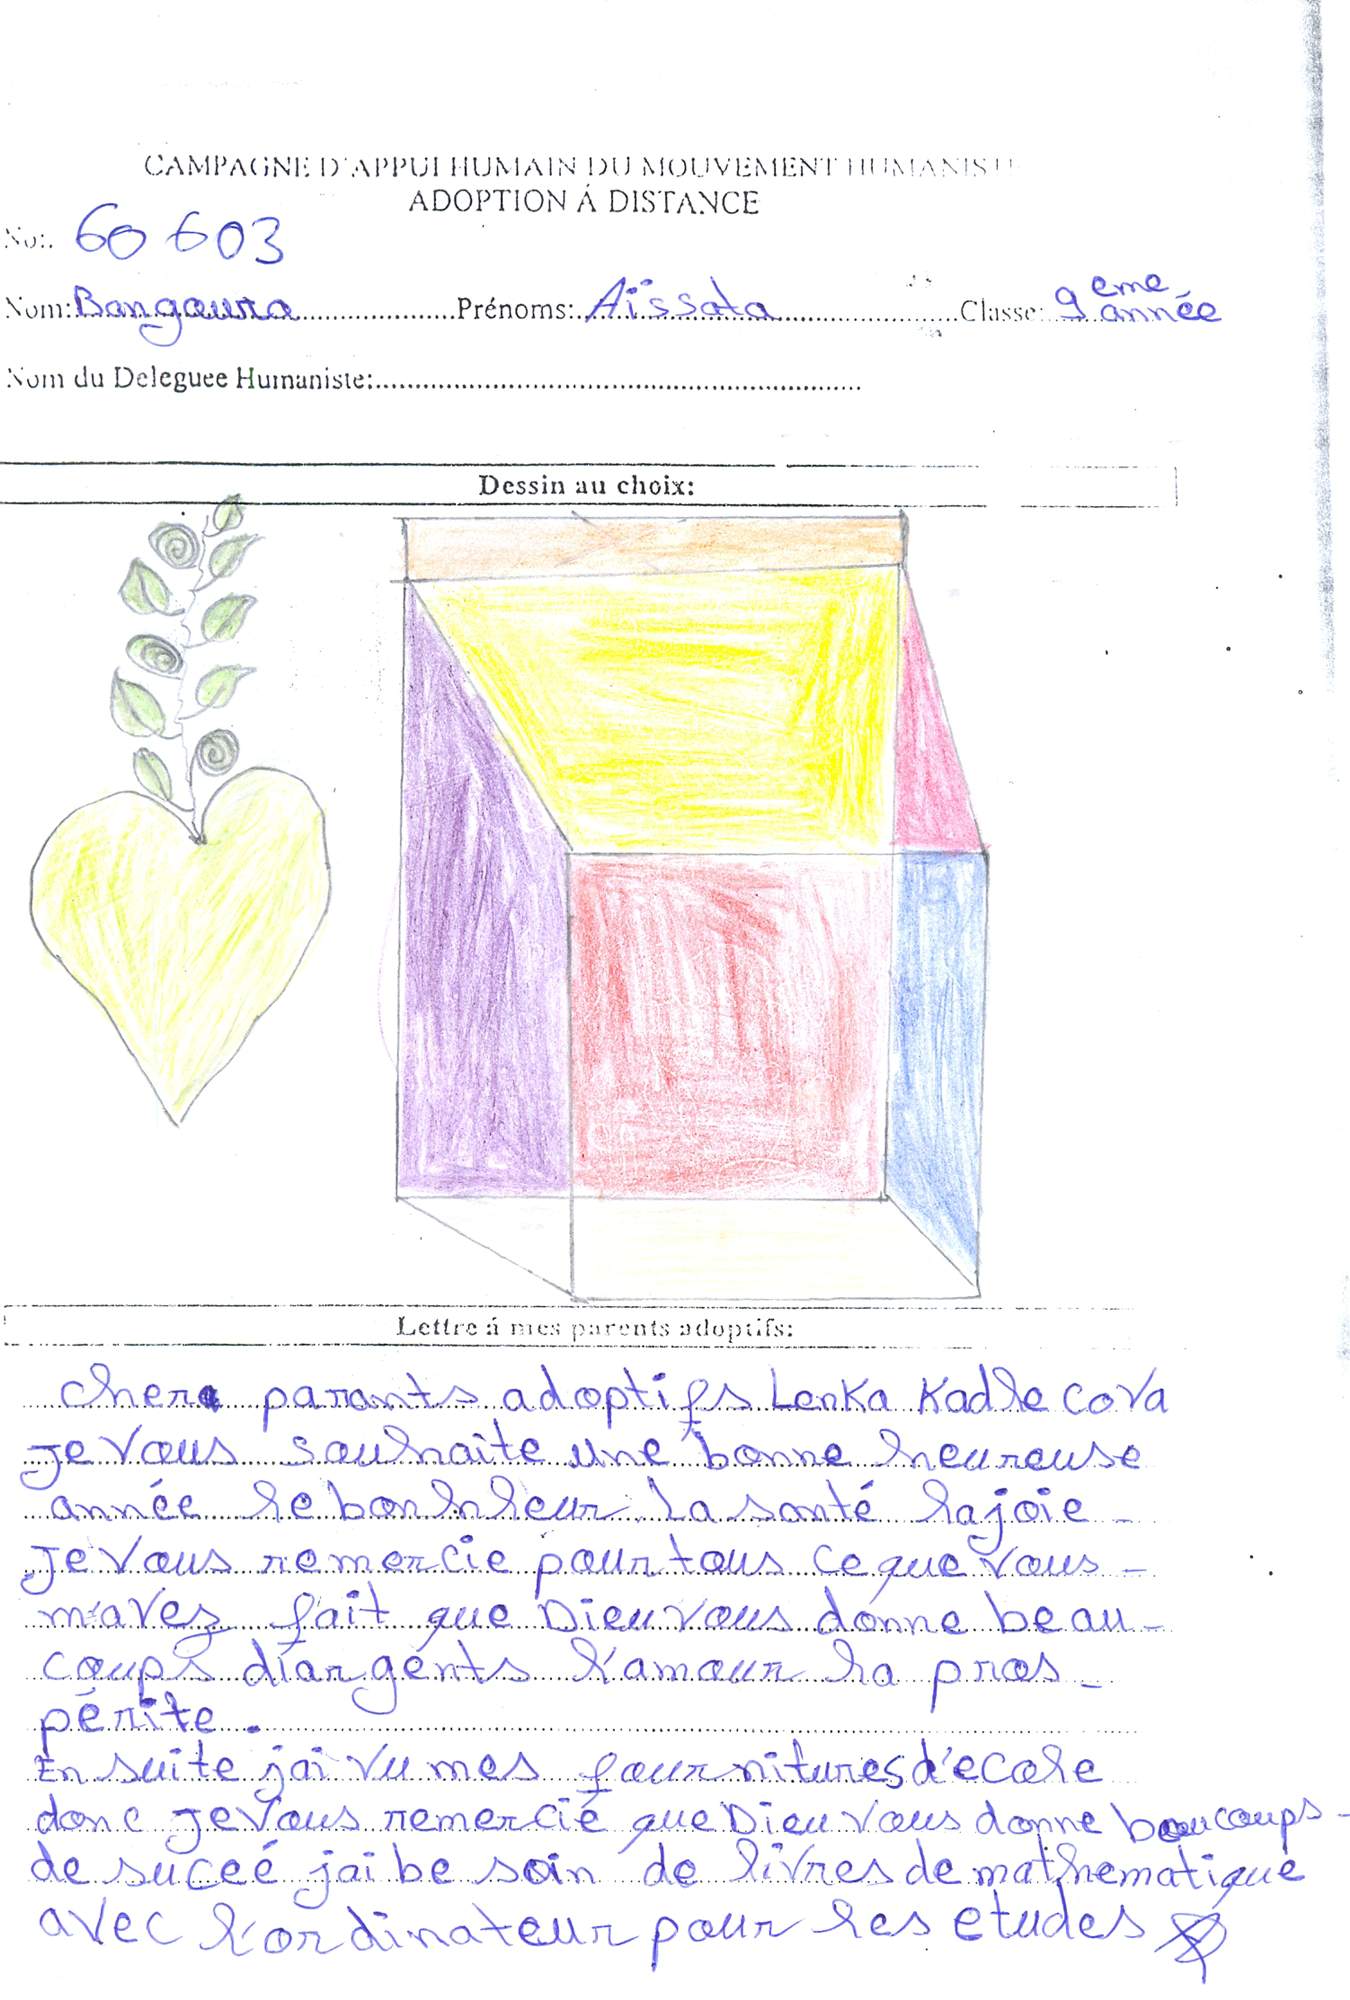 CAMPAGNE D'APPUI HUMAIN DU MOUVEMENT HUMANISTE
ADOPTION Á DISTANCE
No:. 60 603
Nom: Bangoura Prénoms: Aïssata Classe: 9eme année
Nom du Deleguee Humaniste:
Dessin au choix:
Lettre á mes parents adoptifs:
chers parants adoptifs Lenka Kadle cova
Je vous souhaite une bonne heureuse
année le bonhheur La santé la joie -
Je vous remercie pour tous ce que vous -
m'avez fait que Dieu vous donne beau-
coups d'argents l'amour la pros -
périte.
En suite jai vu mes four nitures d'ecole
donc Je vous remercié que Dieu vous donne boucoups -
de suceé jai be soin de livres de mathematique
avec l'ordinateur pour les etudes